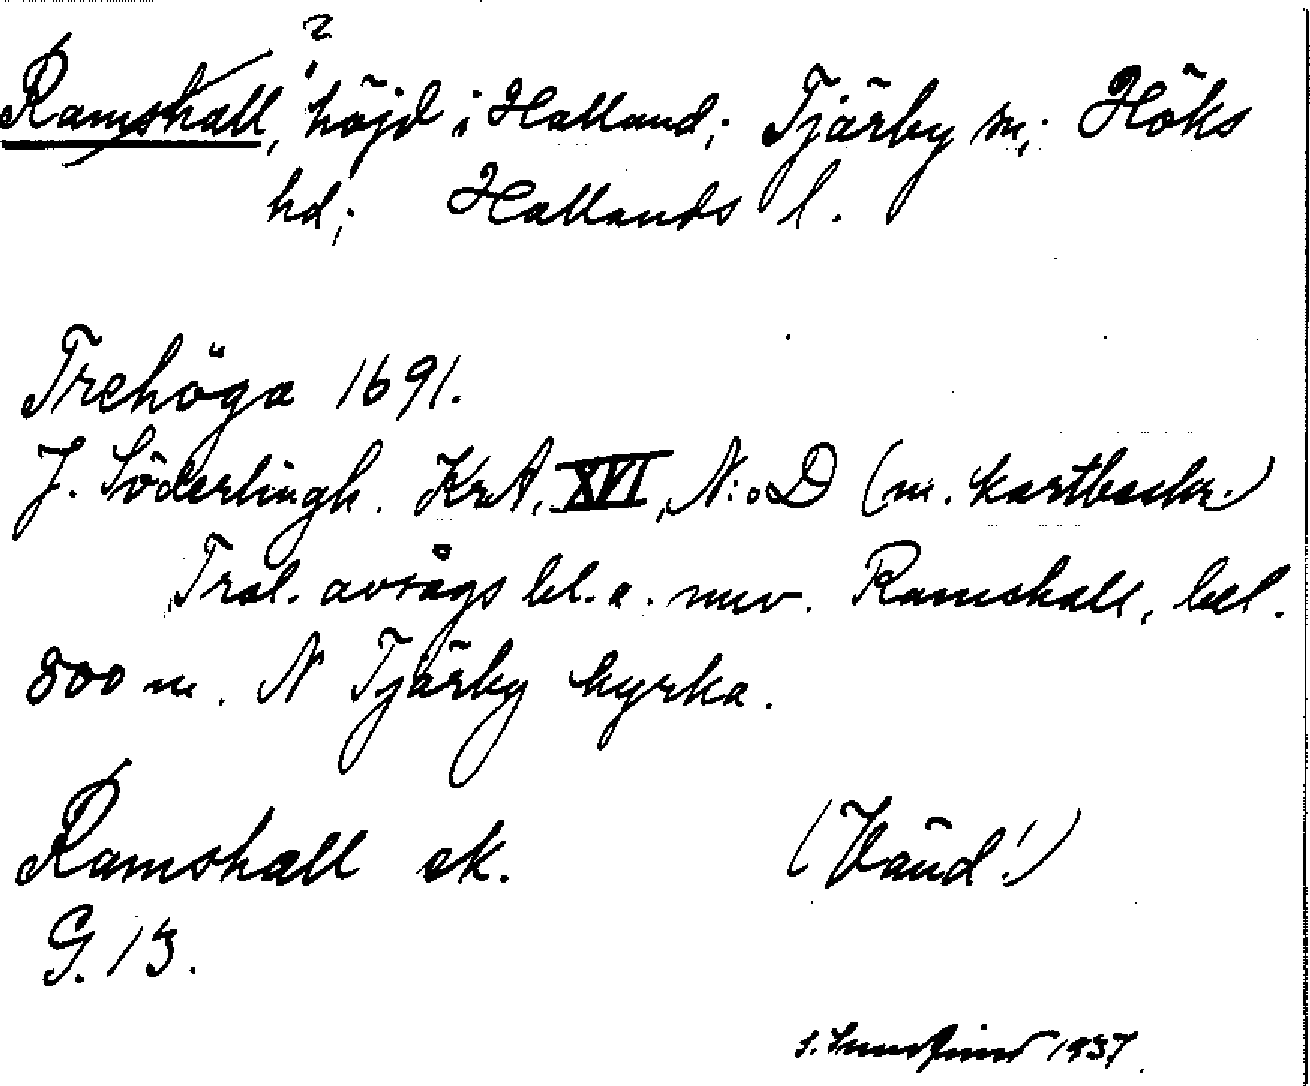 2
Ramshall, höjd i Halland; Tjärby sn; Höks
hd; Hallands l.
Trehöga 1691.
J. Söderlingh. KrA. XVI, N:o D (m. kartbeskr.)
Trol. avsågs bl.a. nuv. Ramshall, bel.
800 m. N Tjärby kyrka.
Ramshall ek.
G. 13.
(Vänd!)
1937